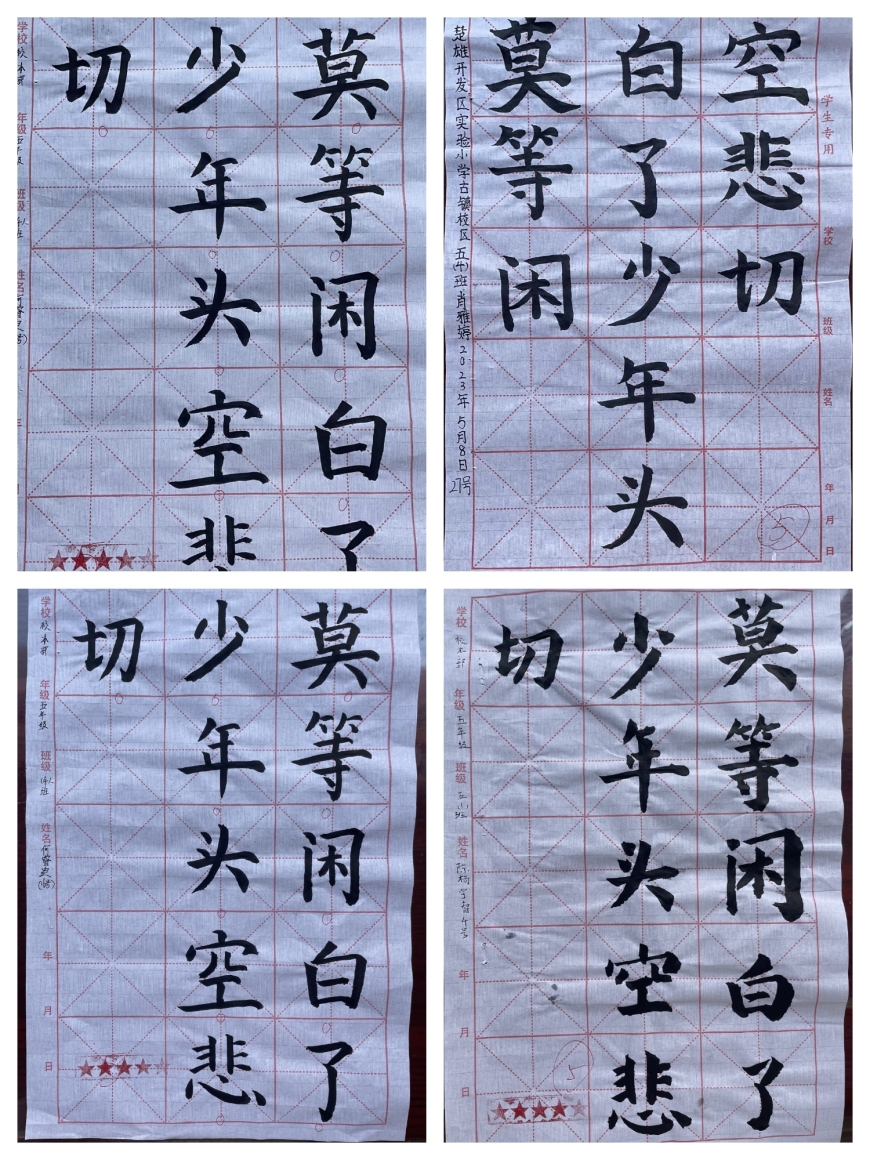 莫等闲白了
少年头空悲
切
学校 校本部 年级 五年级 班级 班 姓名
学生专用 学校 班级 姓名 年 月 日
莫等闲
白了少年头
空悲切
楚雄开发区实验小学古镇校区五 班肖雅婷2023年5月8日27号
5
莫等闲白了
少年头空悲
切
学校 校本部 年级 五年级 班级 班 姓名 何睿 年 月 日
莫等闲白了
少年头空悲
切
学校 校本部 年级 五年级 班级 姓名 年 月 日
5